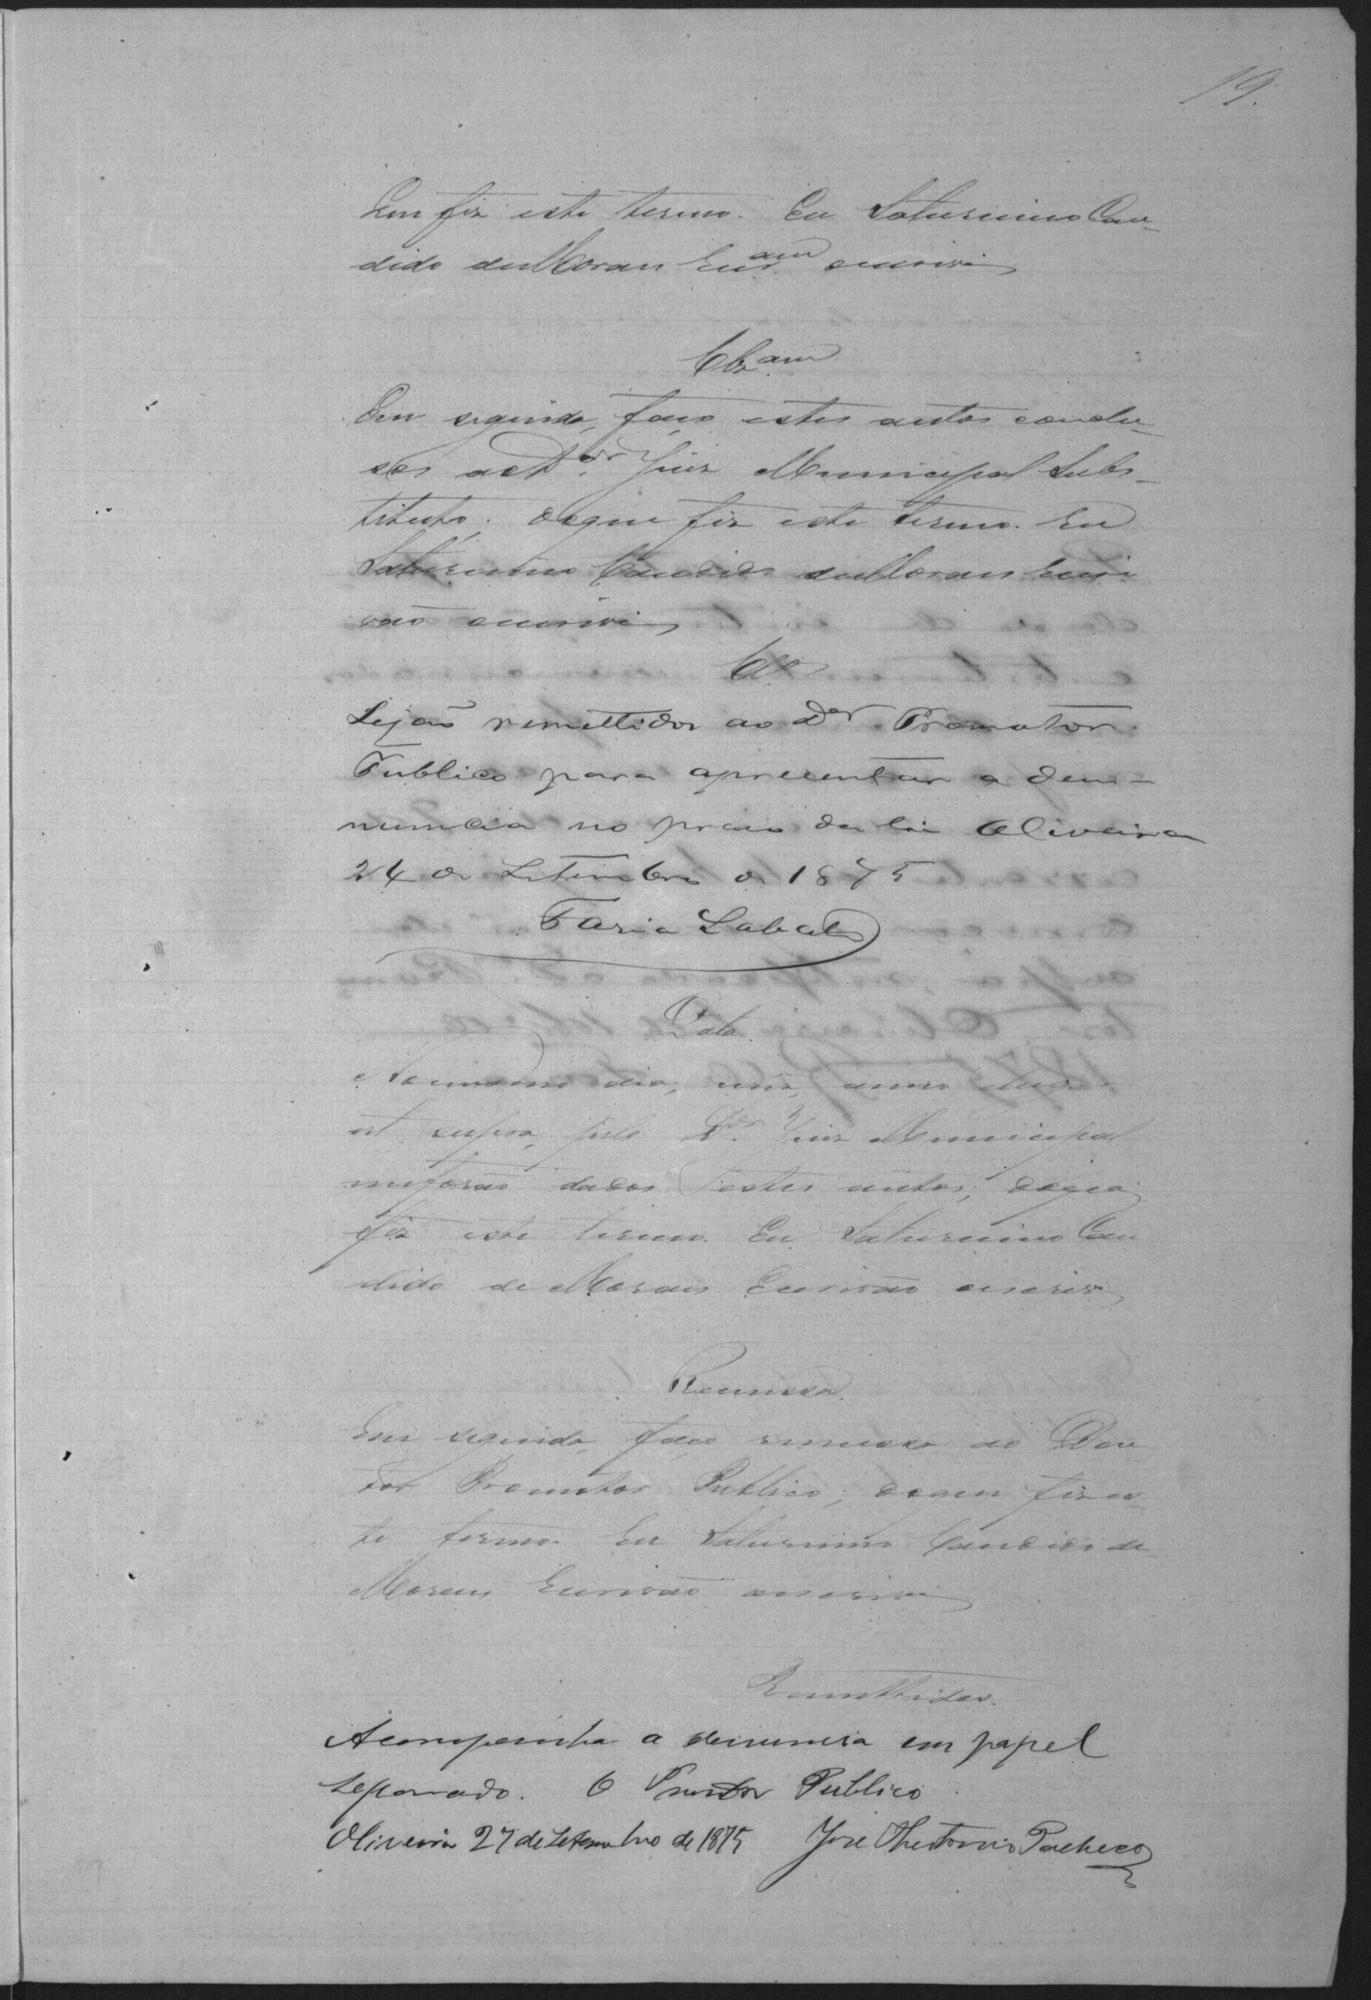 19.
Que fiz este termo. Eu Saturnino Can-
dido de Moraes Escr.am escrivi
Clz.am
Em seguida, faço estes autos conclu-
sos ao D.or Juiz Municipal Subs-
tituto; doque fiz este termo. Eu
Saturnino Candido de Moraes Escri-
vão escrivi
Cls
Sejaõ remettidos ao Dor Promotor
Publico para apresentar a den-
nuncia no praso da lei Oliveira
24 de Setembro de 1875
Faria Lobato
Data
No mesmo dia, mez, anno
ut supra, pelo D.or Juiz Municipal
me foraõ dados estes autos; doque
fiz este termo. Eu Saturnino Can
dido de Moraes Escrivão escrivi
Remessa.
Em seguida, faço remessa ao Dou
tor Promotor Publico; doque fiz es-
te termo. Eu Saturnino Candido de
Moraes Escrivão escrivi
Remettidos.
Acompanha a denuncia em papel
separado. O Promotor Publico
Oliveira 27 de Setembro de 1875 José Pacheco